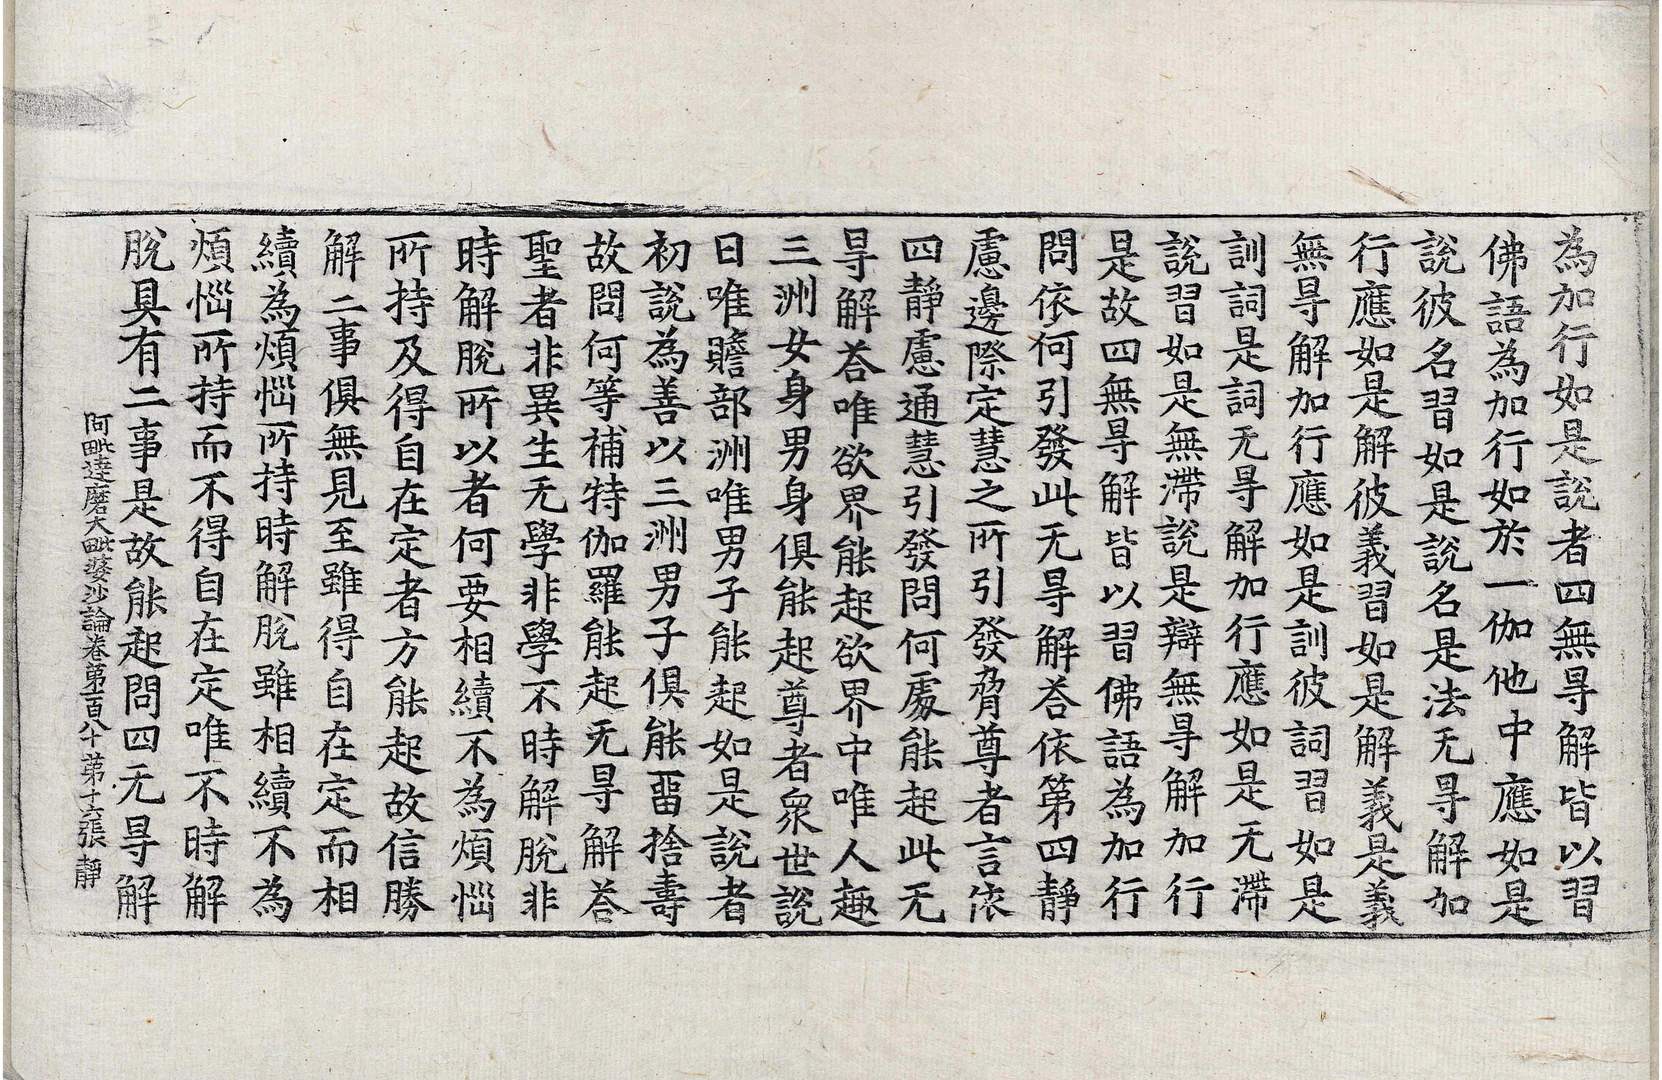 為加行如是說者四無㝵解皆以習
佛語為加行如於一伽他中應如是
說彼名習如是說名是法无㝵解加
行應如是解彼義習如是解義是義
無㝵解加行應如是訓彼詞習如是
訓詞是詞无㝵解加行應如是无滯
說習如是無滯說是辯無㝵解加行
是故四無㝵解皆以習佛語為加行
問依何引發此无㝵解荅依第四靜
慮邊際定慧之所引發脅尊者言依
四靜慮通慧引發問何處能起此无
㝵解荅唯欲界能起欲界中唯人趣
三洲女身男身俱能起尊者衆世說
曰唯贍部洲唯男子能起如是說者
初說為善以三洲男子俱能畱捨壽
故問何等補特伽羅能起无㝵解荅
聖者非異生无學非學不時解脫非
時解脫所以者何要相續不為煩惱
所持及得自在定者方能起故信勝
解二事俱無見至雖得自在定而相
續為煩惱所持時解脫雖相續不為
煩惱所持而不得自在定唯不時解
脫具有二事是故能起問四无㝵解
阿毗達磨大毗婆沙論卷第一百八十 第十六張 靜